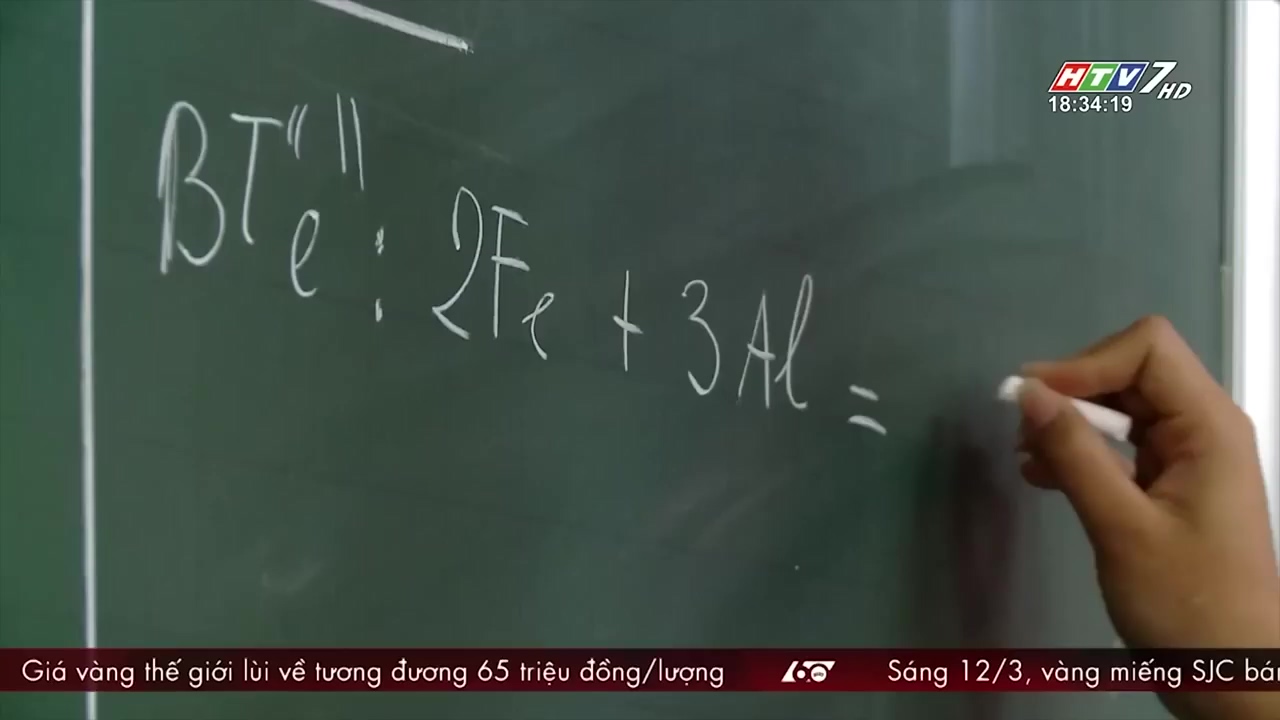 HTV7 HD
18:34:19
BT "e" : 2Fe + 3Al =
Giá vàng thế giới lùi về tương đương 65 triệu đồng/lượng 60 giây Sáng 12/3, vàng miếng SJC bán